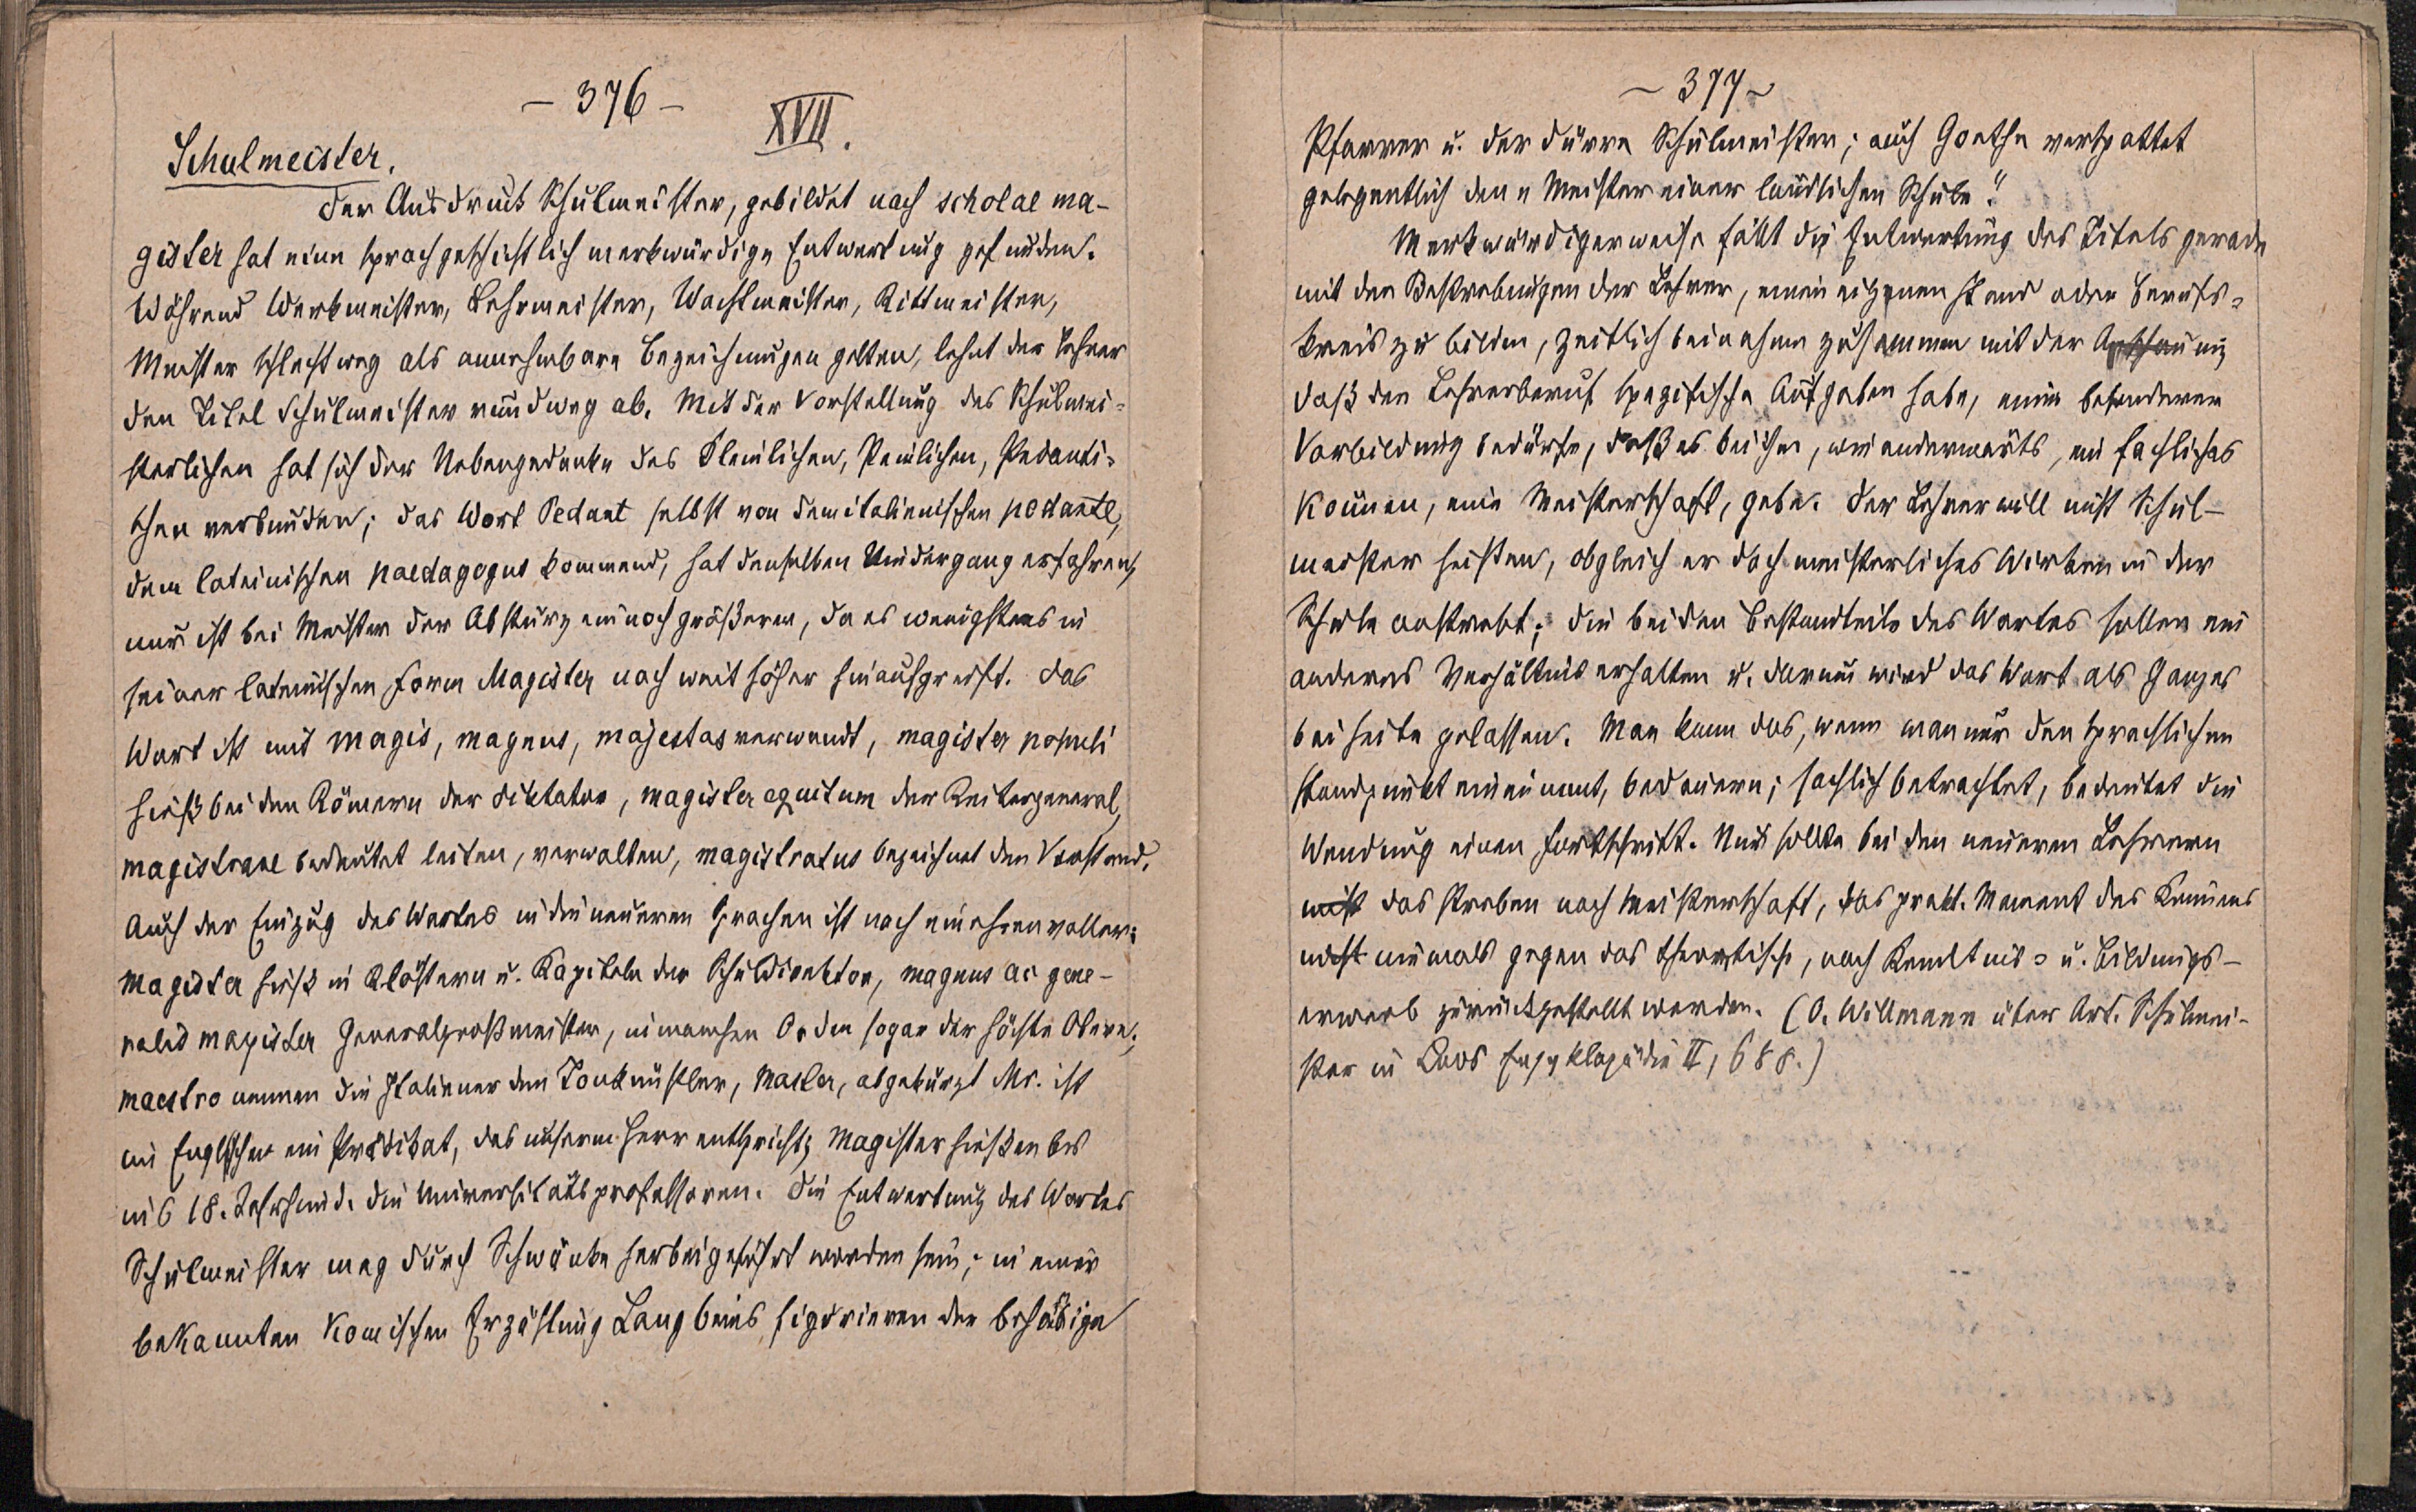 – 376 –
XVII.
Schulmeister.
Der Ausdruck Schulmeister, gebildet nach scholae ma-
gister hat eine sprachgeschichtlich merkwürdige Entwertung gefunden.
Während Werkmeister, Lehrmeister, Wachtmeister, Rittmeister,
Meister schlechtweg als annehmbare Bezeichnungen gelten, lehnt der Lehrer
den Titel Schulmeister rundweg ab. Mit der Vorstellung des Schulmei-
sterlichen hat sich der Nebengedanke des Kleinlichen, Peinlichen, Pedanti-
schen verbunden; das Wort Pedant selbst von dem italienischen pedante,
dem lateinischen paedagogus kommend, hat denselben Niedergang erfahren,
nur ist bei Meister der Absturz ein noch größerer, da es wenigstens in
seiner lateinischen Form Magister noch weit höher hinaufgreift. Das
Wort ist mit magis, magnus, majestas verwandt, magister populi
hieß bei den Römern der Diktator, magister equitum der Reitergeneral,
magistrare bedeutet leiten, verwalten, magistratus bezeichnet den Vorstand.
Auch der Einzug des Wortes in die neueren Sprachen ist noch ein ehrenvoller:
magister hieß in Klöstern u. Kapiteln der Schuldirektor, magnus ac gene-
ralis magister Generalgroßmeister, in manchen Orden sogar der höchste Obere;
maestro nennen die Italiener den Tonkünstler, Master, abgekürzt Mr. ist
im Englischen ein Prädikat, das unserm Herr entspricht; Magister hießen bis
ins 18. Jahrhund. die Universitätsprofessoren. Die Entwertung des Wortes
Schulmeister mag durch Schwänke herbeigeführt worden sein; in einer
bekannten komischen Erzählung Langbeins figurieren der behäbige
– 377 –
Pfarrer u. der dürre Schulmeister; auch Goethe verspottet
gelegentlich den „Meister einer ländlichen Schule“.
Merkwürdigerweise fällt die Entwertung des Titels gerade
mit den Bestrebungen der Lehrer, einen eigenen Stand oder Berufs-
kreis zu bilden, zeitlich beinahem zusammen mit der
daß der Lehrerberuf spezifische Aufgaben habe, einer besonderen
Vorbildung bedürfe, daß es bei ihm, wie anderwärts, ein fachliches
Können, eine Meisterschaft, gebe. Der Lehrer will nicht Schul-
meister heißen, obgleich er doch meisterliches Wirken in der
Schule anstrebt; die beiden Bestandteile des Wortes sollen ein
anderes Verhältnis erhalten u. darum wird das Wort als Ganzes
bei seite gelassen. Man kann das, wenn man nur den sprachlichen
Standpunkt einnimmt, bedauern; sachlich betrachtet, bedeutet die
Wendung einen Fortschritt. Nur sollte bei den neueren Lehrern
nicht das Streben nach Meisterschaft, das prakt. Moment des Könnens
nicht niemals gegen das theoretische, nach Kenntnis- u. Bildungs-
erwerb zurückgestellt werden. (O. Willmann über Art. Schulmei-
ster in Loos Enzyklopädie II, 688.)